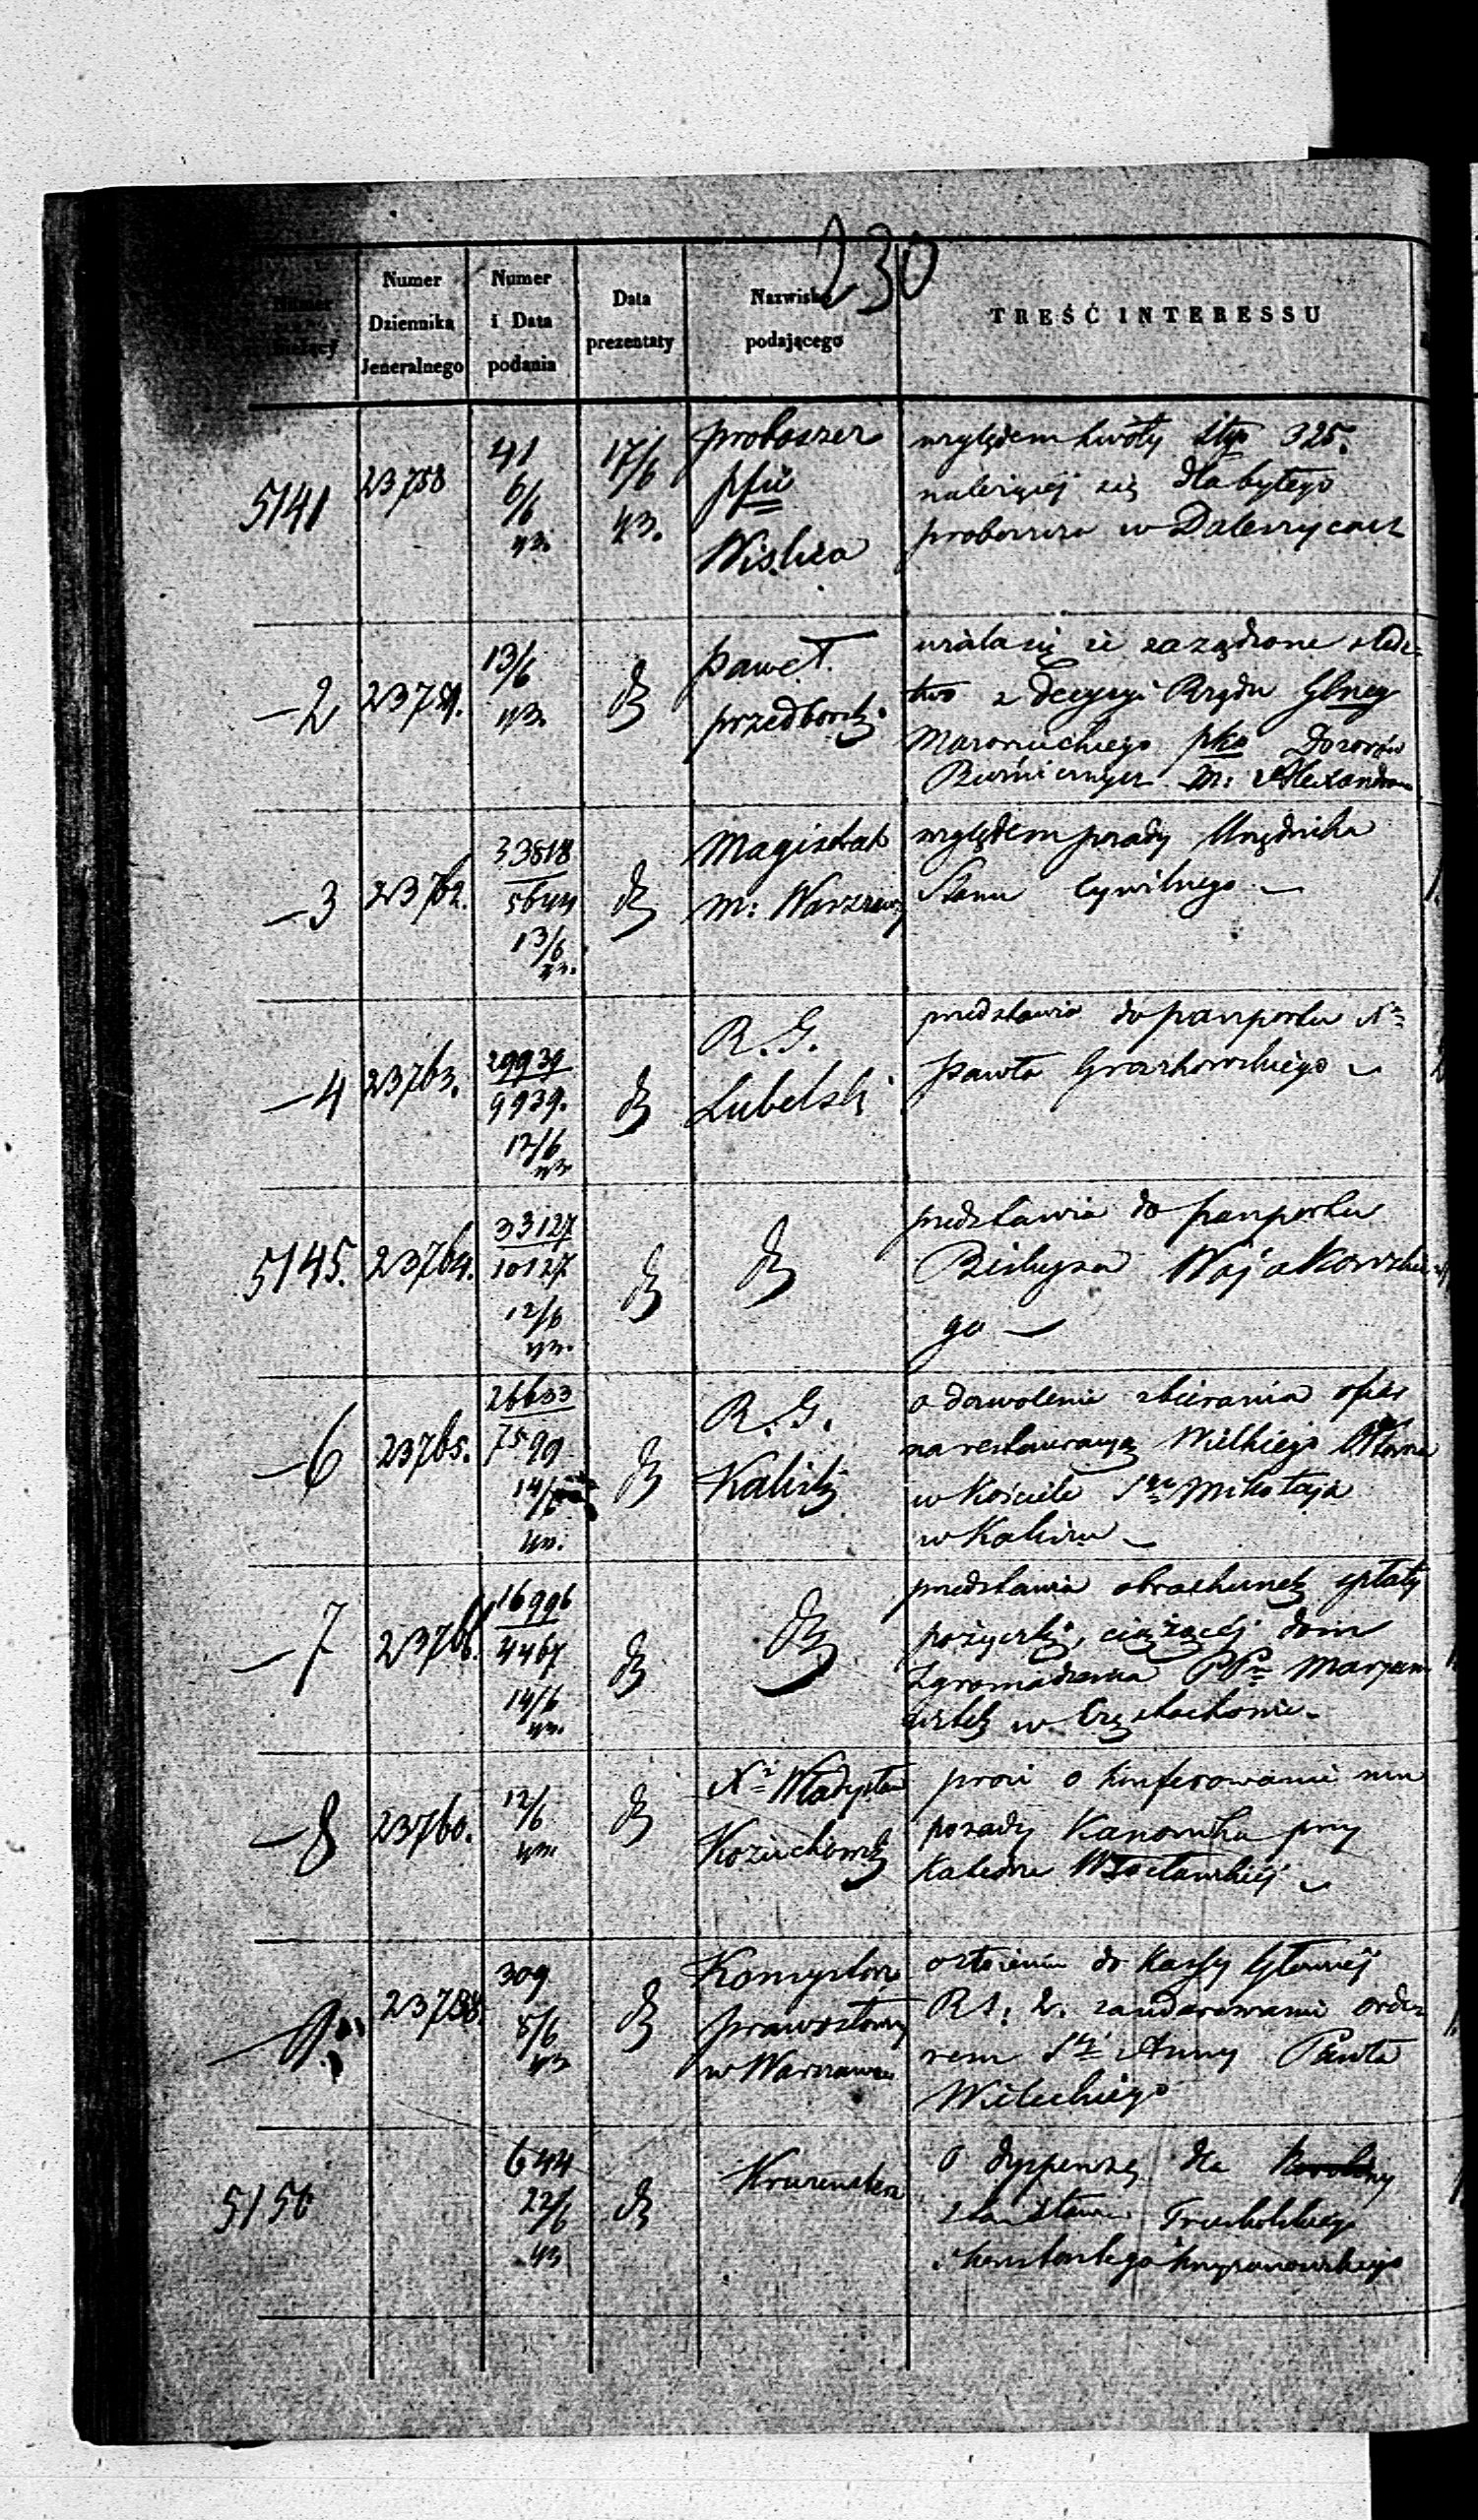 230
Numer
bieżący
Numer
Dziennika
Jeneralnego
Numer
i Data
podania
Data
prezentaty
Nazwisko
podającego
TREŚĆ INTERESSU
5141
23758
41
6/6
43.
17/6
43.
proboszcz
pfii
Wislica
względem kwoty złp 325.
należącej się dla byłego
proboszcza w Daleszycach
—2
13/6
43.
Paweł
przedborski
użala się że zarządzone śledz
two z decyzyi Rządu Gbneg
Mazowieckiego pko Dozorów
Bużniczych m: Alexandrow
—3
23762.
33818
5644
13/6
43.
Magistrat
m: Warszawy
względem posady Urzędnika
Stanu Cywilnego —
—4
23763.
29939
9939.
12/6
43
R. G.
Lubelski
przedstawia do paszportu X
Pawła
5145.
23764.
33127
10127
12/6
43.
przedstawia do paszportu
Biskupa Wojakowskie
go —
—6
23765.
26633
7590
14/6
43.
R. G.
Kaliski
o dozwolenie zbierania ofiar
na restauracyą Wielkiego Ołtarza
w Kościele Sgo Mikołaja
w Kaliszu —
—7
23766.
16996
4467
14/6
43.
przedstawia obrachunek spłaty
pożyczki, ciążącej dom
Zgromadzenia PPn Maryawi
tek w Częstochowie —
—8
23760.
12/6
43.
X Władysław
Kożuchowski
prosi o konferowanie mu
posady Kanonika przy
Katedrze Włocławskiej —
309
8/6
43
Konsystorz
prawosławny
w Warszawie
o złożeniu do Kassy Głównej
RS. 2. za udarowanie orde
rem Sty Anny Pawła
5150
644
22/6
43
O dyspensę dla
Stanisława
i Konstantego